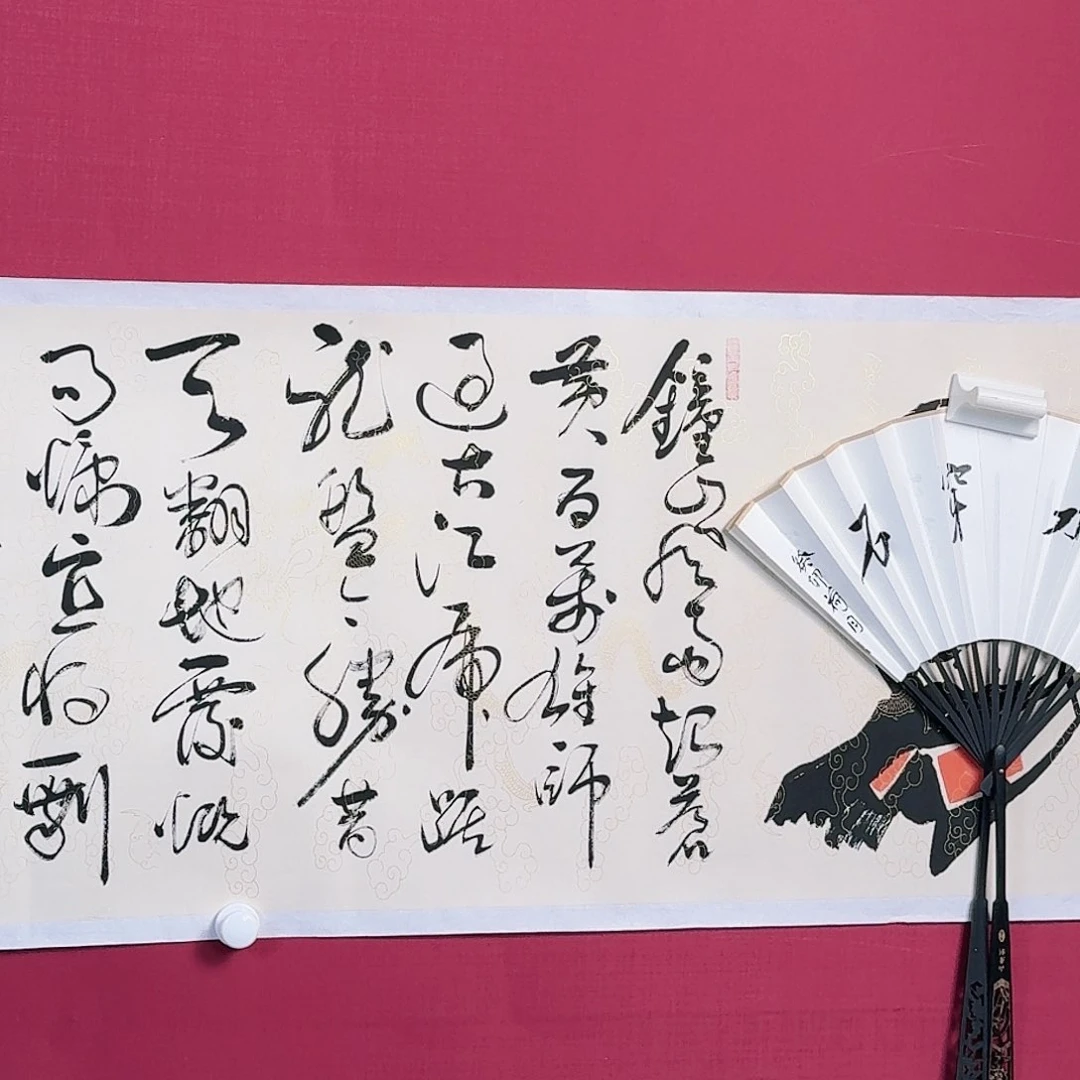 鐘山風雨起蒼
黄百萬雄師
過大江虎踞
龍盤今勝昔
天翻地覆慨
而慷宜將剩
癸卯荷月